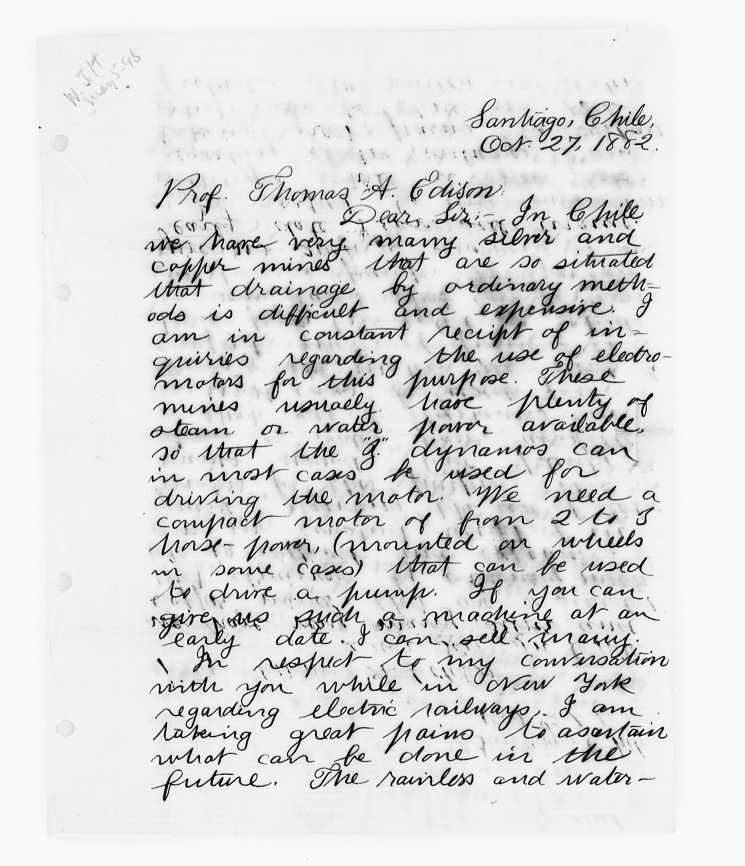 W.J.H
May 5-98
Santiago, Chile,
Oct. 27, 1882.
Prof. Thomas A. Edison.
Dear Sir:- In Chile
we have very many silver and
copper mines that are so situated
that drainage by ordinary meth-
ods is difficult and expensive. I
am in constant receipt of in-
quiries regarding the use of electro-
motors for this purpose. These
mines usually have plenty of
steam or water power available,
so that the "Z" dynamos can
in most cases be used for
driving the motor. We need a
compact motor of from 2 to 3
horse-power, (mounted on wheels
in some cases) that can be used
to drive a pump. If you can
give us such a machine at an
early date. I can sell many.
In respect to my conversation
with you while in New York
regarding electric railways, I am
taking great pains to ascertain
what can be done in the
future. The rainless and water-